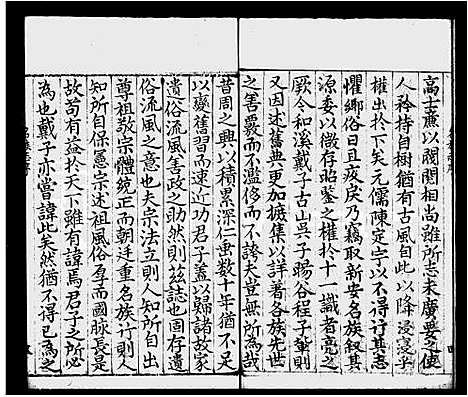 高士廉以閥閱相尚雖所志未廣要之使
人矜持自樹猶有古風自此以降浸寖乎
權出於下矣元儒陳定宇以不得行其志
懼鄉俗日且疲戾乃竊取新安名族叙其
源委以微存昭鑒之權於十一識者亮之
厥令和溪戴子古山吳子暘谷程子輩則
又因述舊典更加摭集以詳著各族先世
之善覈而不濫侈而不誇夫豈無所為哉
昔周之興以積累深仁毋數十年猶不足
以變舊習而速近功君子蓋以歸諸故家
遺俗流風善政之助然則茲誌也固存遺
俗流風之意也夫宗法立則人知所自出
尊祖敬宗體統正而朝廷重名族行則人
知所自保憲宗述祖風俗盈而國脉長是
故苟有益於天下雖有諱焉君子之所必
為也戴子亦嘗諱此矣然猶不得已為之